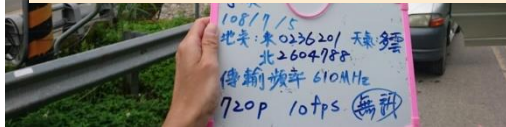 108/7/5
地点:東0236201 天氣:多雲
北2604788
傳輸頻率 610MHz
720p 10fps 無訊